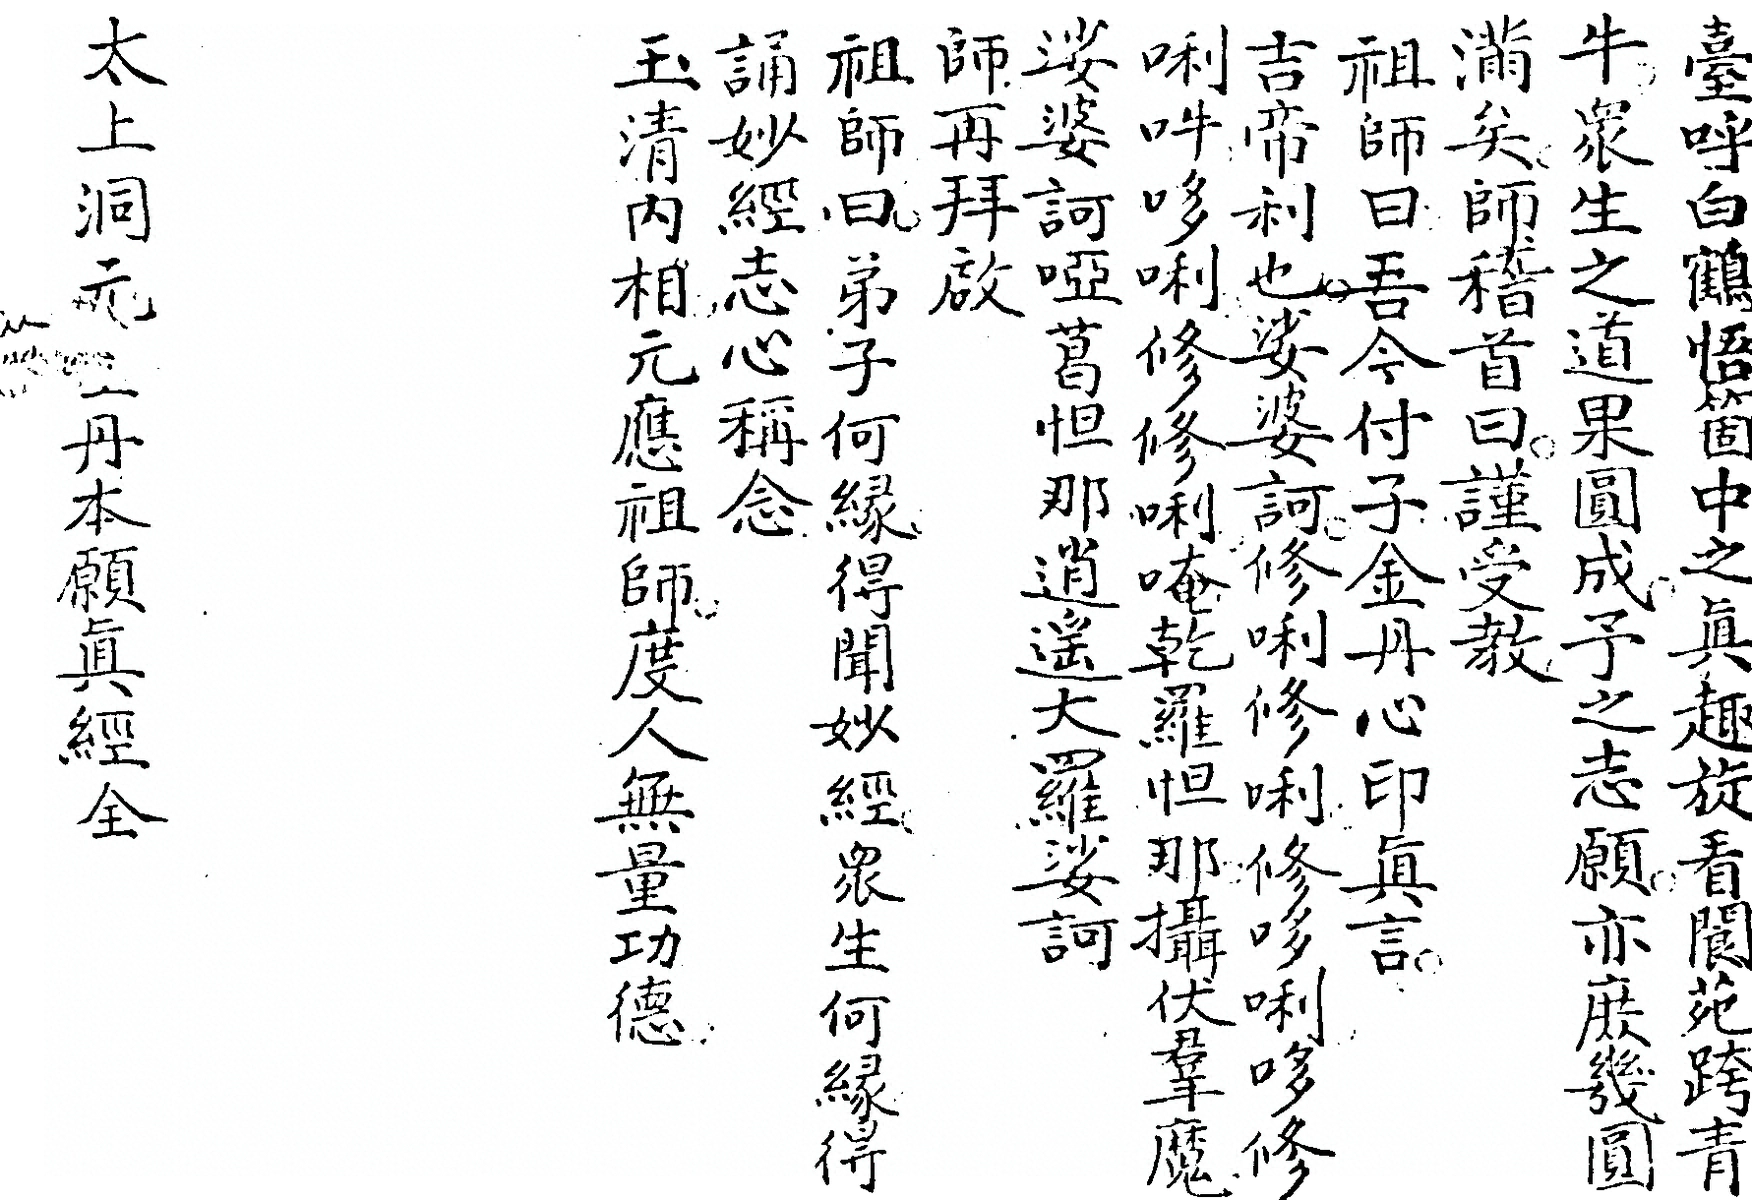 臺呼白鶴悟箇中之眞趣旋看閬苑跨青
牛眾生之道果圓成予之志願亦庶幾圓
滿矣師稽首曰謹受教
祖師曰吾今付子金丹心印眞言
吉帝利也娑婆訶修唎修唎修哆唎哆修
唎吽哆唎修修唎唵乾羅怛那攝伏羣魔
娑婆訶啞葛怛那逍遥大羅娑訶
師再拜啟
祖師曰弟子何緣得聞妙經眾生何緣得
誦妙經志心稱念
玉清内相元應祖師度人無量功德
太上洞元 丹本願眞經全